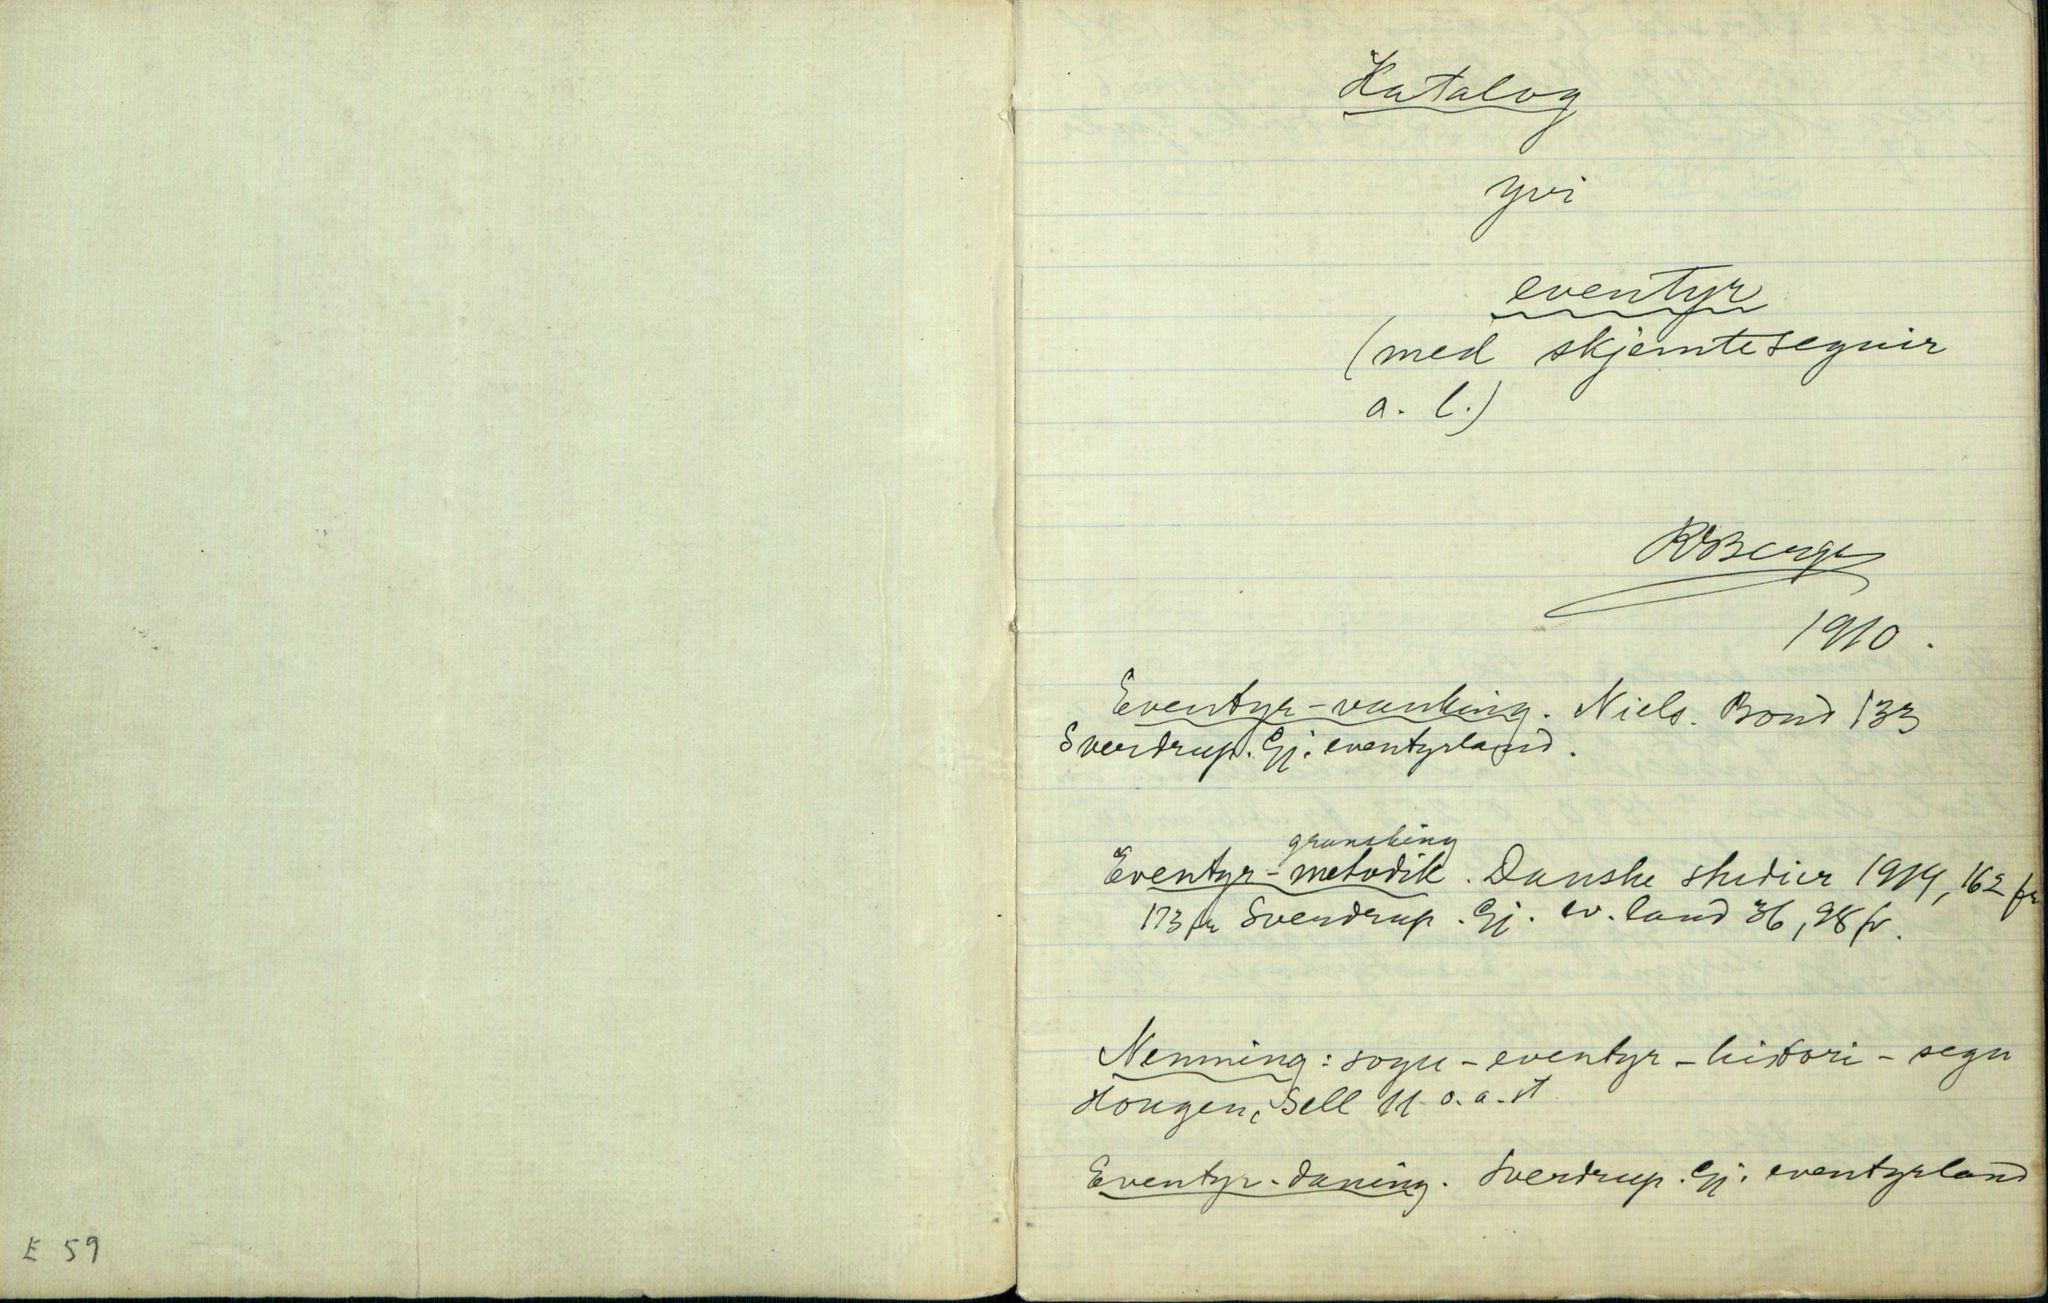 E 59
Katalog
yvi
eventyr
(med skjemtesegnir
a. l.)
RBerge
1910.
Eventyr-vanking. Niels. Bond 133
Sverdrup. Gj. eventyrland.
gransking
Eventyr-metodik. Danske studier 1914, 162 fr
173 fr Sverdrup. Gj. ev. land 36, 98 fr.
Nemning: sogu - eventyr - histori - segn
Hougen, Sell 11 o. a. st
Eventyr-daning. Sverdrup. Gj. eventyrland